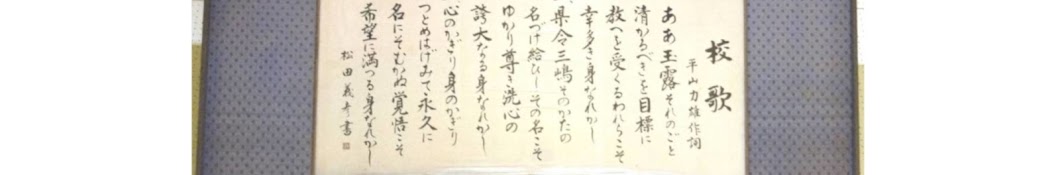 校歌
平山力雄作詞
ああ玉露それのごと
清かるべきを目標に
教へを受くるわれらこそ
幸多き身なれかし
県令三嶋そのかたの
名づけ給ひしその名こそ
ゆかり尊き洗心の
誇大なる身なれかし
心のかぎり身のかぎり
つとめはげみて永久に
名にそむかぬ覚悟こそ
希望に満つる身なれかし
松田義
書